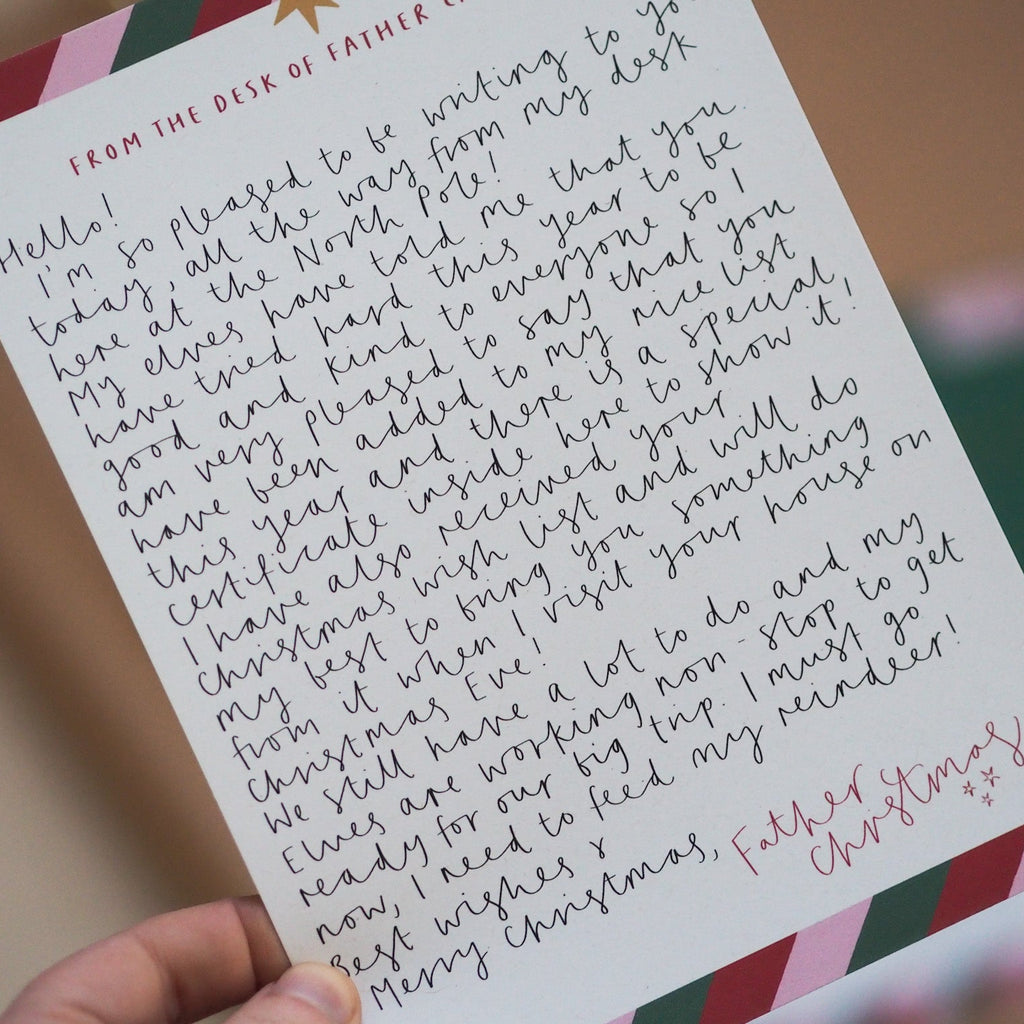 FROM THE DESK OF FATHER
Hello!
I'm so pleased to be writing to
today, all the way from my desk
here at the North Pole!
My elves have told me that you
have tried hard this year to be
good and kind to everyone so I
am very pleased to say that you
have been added to my nice list
this year and there is a special
certificate inside here to show it!
I have also received your
christmas wish list and will do
my best to bring you something
from it when I visit your house on
Christmas Eve!
We still have a lot to do and my
Elves are working non-stop to get
ready for our big trip. I must go
now, I need to feed my reindeer!
Best wishes &
Merry Christmas,
Father
Christmas